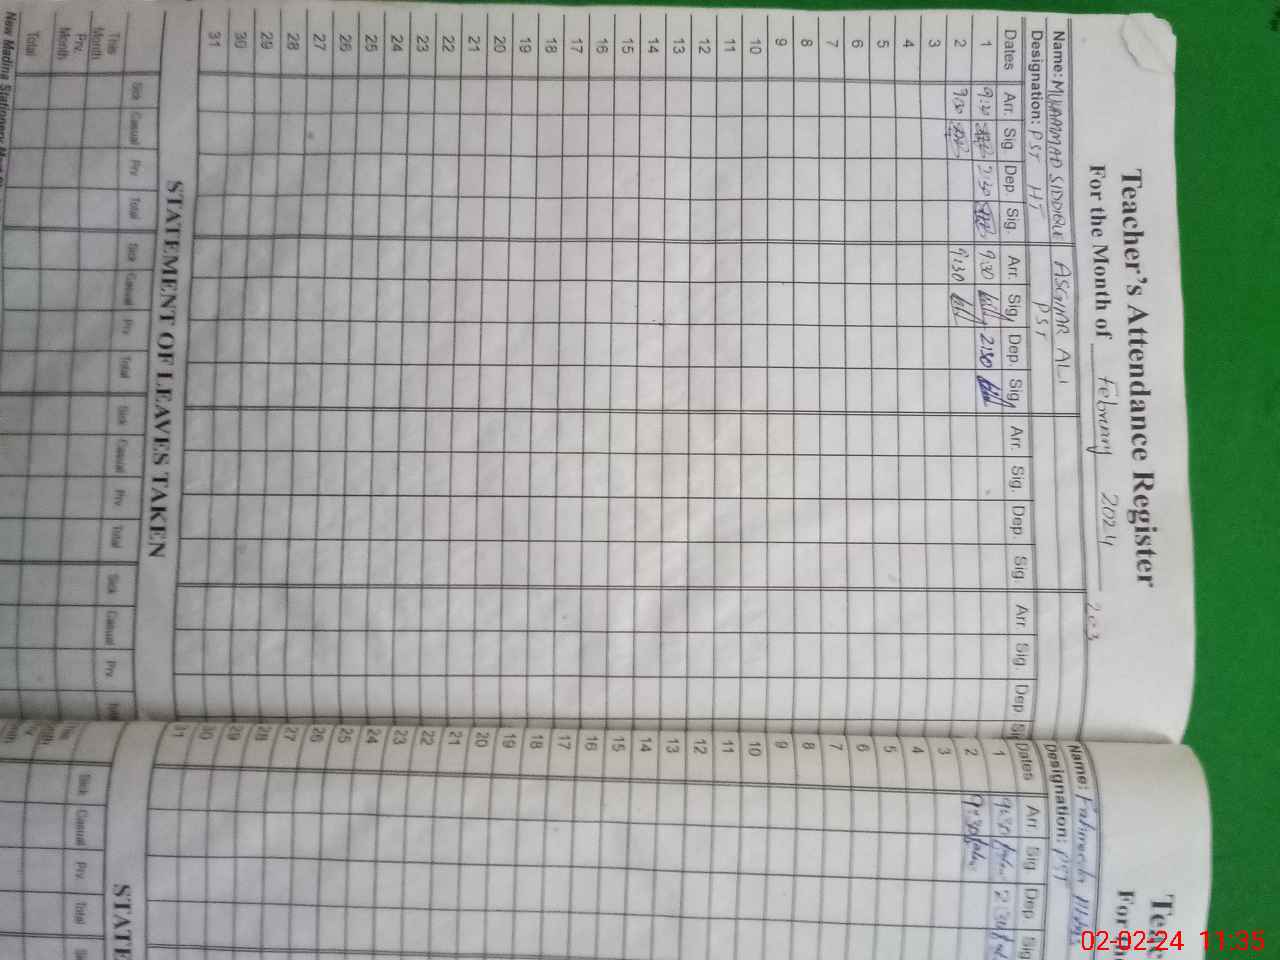 Teacher's Attendance Register
For the Month of February 2024
Name: MUHAMMAD SIDDIQUE ASGHAR ALI
Designation: PST HT PST
Dates Arr. Sig Dep Sig. Arr. Sig, Dep. Sig, Arr. Sig. Dep. Sig. Arr Sig. Dep
1 9:30 2:30 9:30 2:30
2 9:30 9:30
3
4
5
6
7
8
9
10
11
12
13
14
15
16
17
18
19
20
21
22
23
24
25
26
27
28
29
30
31
STATEMENT OF LEAVES TAKEN
Sick Casual Prv Total Sick Casual Prv Total Sick Casual Prv Total Sick Casual Prv.
This Month
Prv. Month
Total
New Madina Stationery
For
Name: Fahmeeda
Designation: PST
Dates Arr Sig. Dep Sig
1 9:30 2:30
2 9:30
3
4
5
6
7
8
9
10
11
12
13
14
15
16
17
18
19
20
21
22
23
24
25
26
27
28
29
30
31
STATE
Sick Casual Prv. Total
02-02-24 11:35